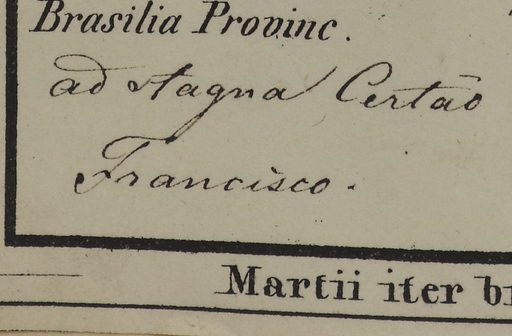 Brasilia Provinc.
ad stagna Certão
Francisco.
Martii iter